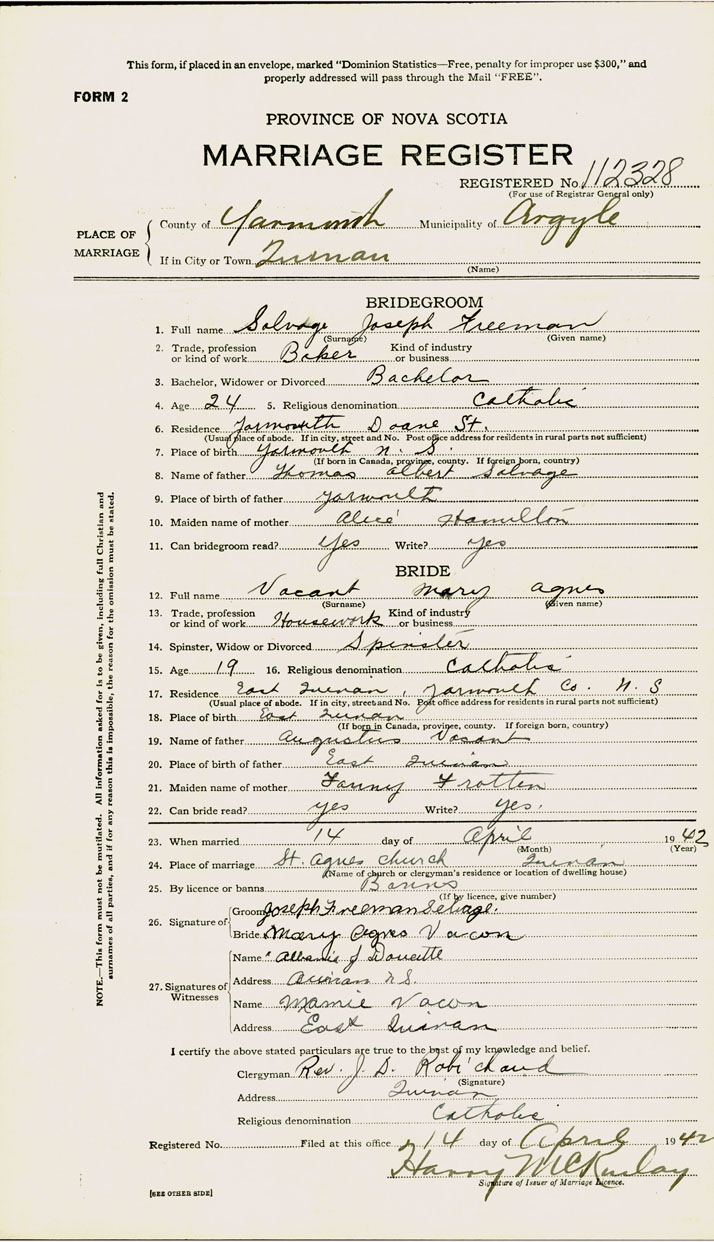 This form, if placed in an envelope, marked "Dominion Statistics—Free, penalty for improper use $300," and
properly addressed will pass through the Mail "FREE".
FORM 2
PROVINCE OF NOVA SCOTIA
MARRIAGE REGISTER
REGISTERED No. 112328
(For use of Registrar General only)
PLACE OF MARRIAGE
County of Yarmouth Municipality of Argyle
If in City or Town Quinan
(Name)
BRIDEGROOM
1. Full name Salvage Joseph Freeman
(Surname) (Given name)
2. Trade, profession or kind of work Baker Kind of industry or business
3. Bachelor, Widower or Divorced Bachelor
4. Age 24 5. Religious denomination Catholic
6. Residence Yarmouth Doane St.
(Usual place of abode. If in city, street and No. Post office address for residents in rural parts not sufficient)
7. Place of birth Yarmouth N. S.
(If born in Canada, province, county. If foreign born, country)
8. Name of father Thomas Albert Salvage
9. Place of birth of father Yarmouth
10. Maiden name of mother Alice Hamilton
11. Can bridegroom read? Yes Write? yes
BRIDE
12. Full name Vacant Mary Agnes
(Surname) (Given name)
13. Trade, profession or kind of work Housework Kind of industry or business
14. Spinster, Widow or Divorced Spinster
15. Age 19 16. Religious denomination Catholic
17. Residence East Quinan, Yarmouth Co. N. S
(Usual place of abode. If in city, street and No. Post office address for residents in rural parts not sufficient)
18. Place of birth East Quinan
(If born in Canada, province, county. If foreign born, country)
19. Name of father Augustus Vacant
20. Place of birth of father East Quinan
21. Maiden name of mother Fanny Frotten
22. Can bride read? yes Write? yes.
23. When married 14 day of April 1942
(Month) (Year)
24. Place of marriage St. Agnes church Quinan
(Name of church or clergyman's residence or location of dwelling house)
25. By licence or banns Banns
(If by licence, give number)
26. Signature of
Groom Joseph Freeman Selvage.
Bride Mary Agnes Vacon
27. Signatures of Witnesses
Name Albanie J Doucette
Address Quinan N S.
Name Mamie Vacon
Address East Quinan
I certify the above stated particulars are true to the best of my knowledge and belief.
Clergyman Rev. J. D. Robichaud
(Signature)
Address Quinan
Religious denomination Catholic
Registered No. Filed at this office 14 day of April 1942
Harry McKinlay
Signature of Issuer of Marriage Licence.
[SEE OTHER SIDE]
NOTE.—This form must not be mutilated. All information asked for is to be given, including full Christian and
surnames of all parties, and if for any reason this is impossible, the reason for the omission must be stated.